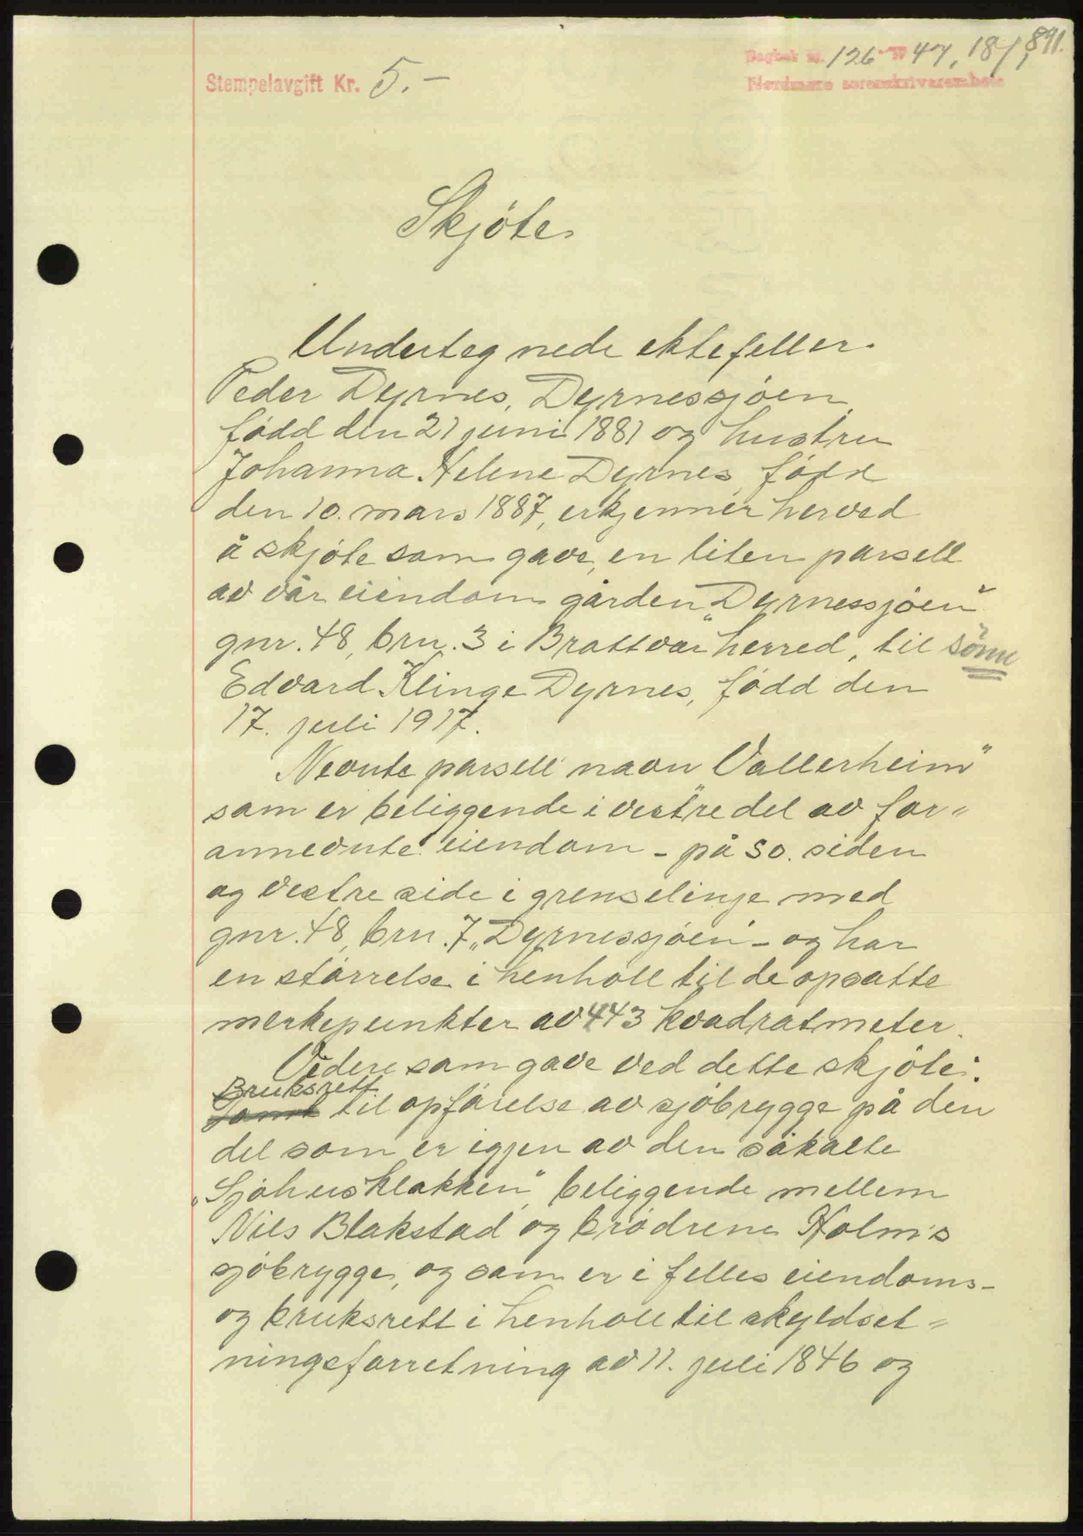 891.
Stempelavgift Kr. 5.-
Dagbok nr. 126 19 47, 18/1
Nordmøre sorenskriverembete
Skjöte.
Undertegnede ektefeller.
Peder Dyrnes, Dyrnessjöen,
född den 21 juni 1881 og hustru
Johanna Helene Dyrnes, född
den 10. mars 1887, erkjenner herved
å skjöte som gave, en liten parsell
av vår eiendom gården „Dyrnessjöen"
gnr. 48, brn. 3 i Brattvær herred, til sönn
Edvard Klinge Dyrnes, född den
17. juli 1917.
Nevnte parsell navn Vallerheim"
som er beliggende i vestre del av for=
annevnte eiendom - på so. siden
og vestre side i grenselinje med
gnr. 48, brn. 7 „Dyrnessjöen" - og har
en störrelse i henholl til de opsatte
merkepunkter av 443 kvadratmeter.
Videre som gave ved dette skjöte:
Bruksrett
Samt til opförelse av sjöbrygge på den
del som er igjen av den såkalte
„Sjöhusklakken", beliggende mellem
Nils Blakstad og brödrene Holm's
sjöbrygge, og som er i felles eiendoms-
og bruksrett i henholl til skyldset=
ningsforretning av 11. juli 1846 og